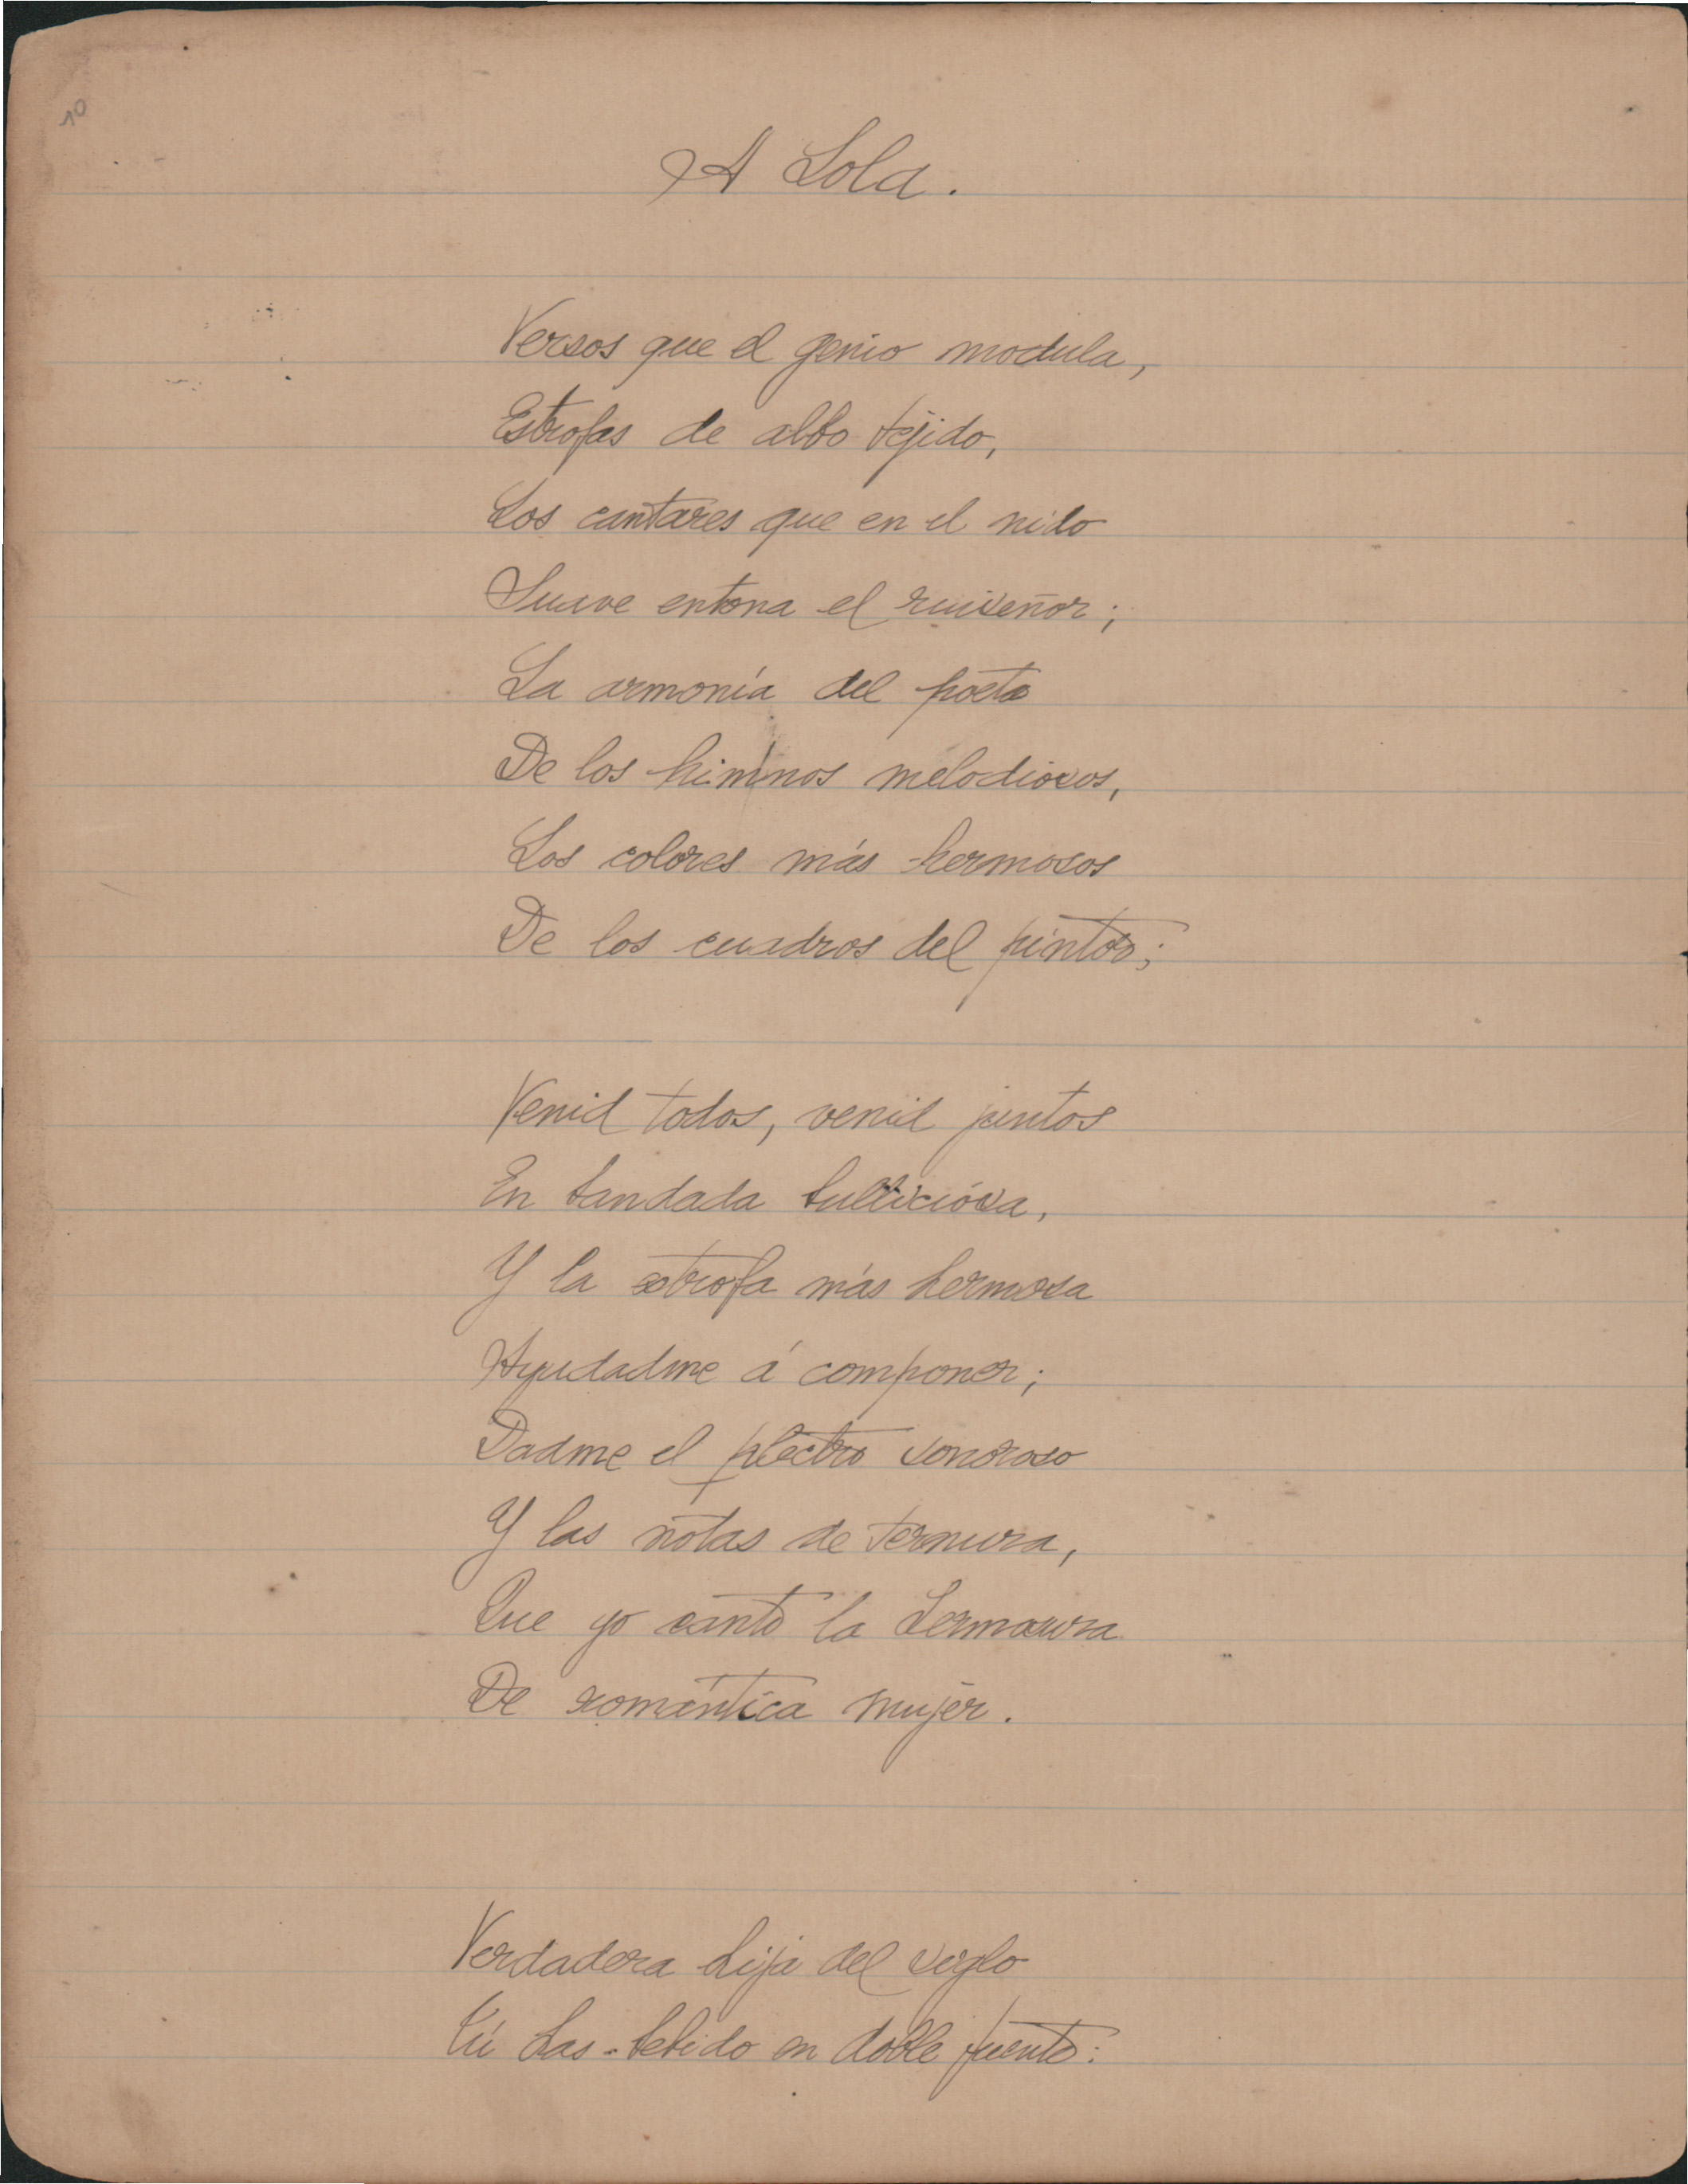 10
A Lola.
Versos que el genio modula,
Estrofas de albo tejido,
Los cantares que en el nido
Suave entona el ruiseñor;
La armonía del poeta
De los himnos melodiosos,
Los colores más hermosos
De los cuadros del pintor;
Venid todos, venid juntos
En bandada bulliciósa,
Y la estrofa más hermosa
Ayudadme á componer;
Dadme el plectro sonoroso
Y las notas de ternura,
Que yo canto la hermosura
De romántica mujer.
Verdadera hija del siglo
Tú has bebido en doble fuente: